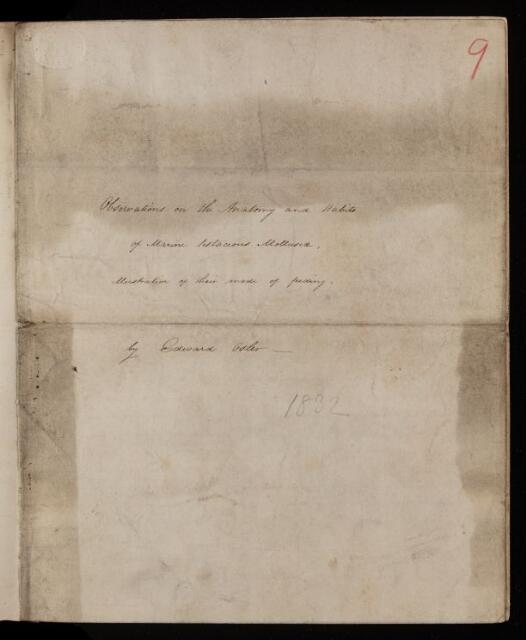 9
Observations on the Anatomy and Habits
of Marine testaceous Mollusca,
Illustrative of their mode of feeding.
by Edward Osler —
1832